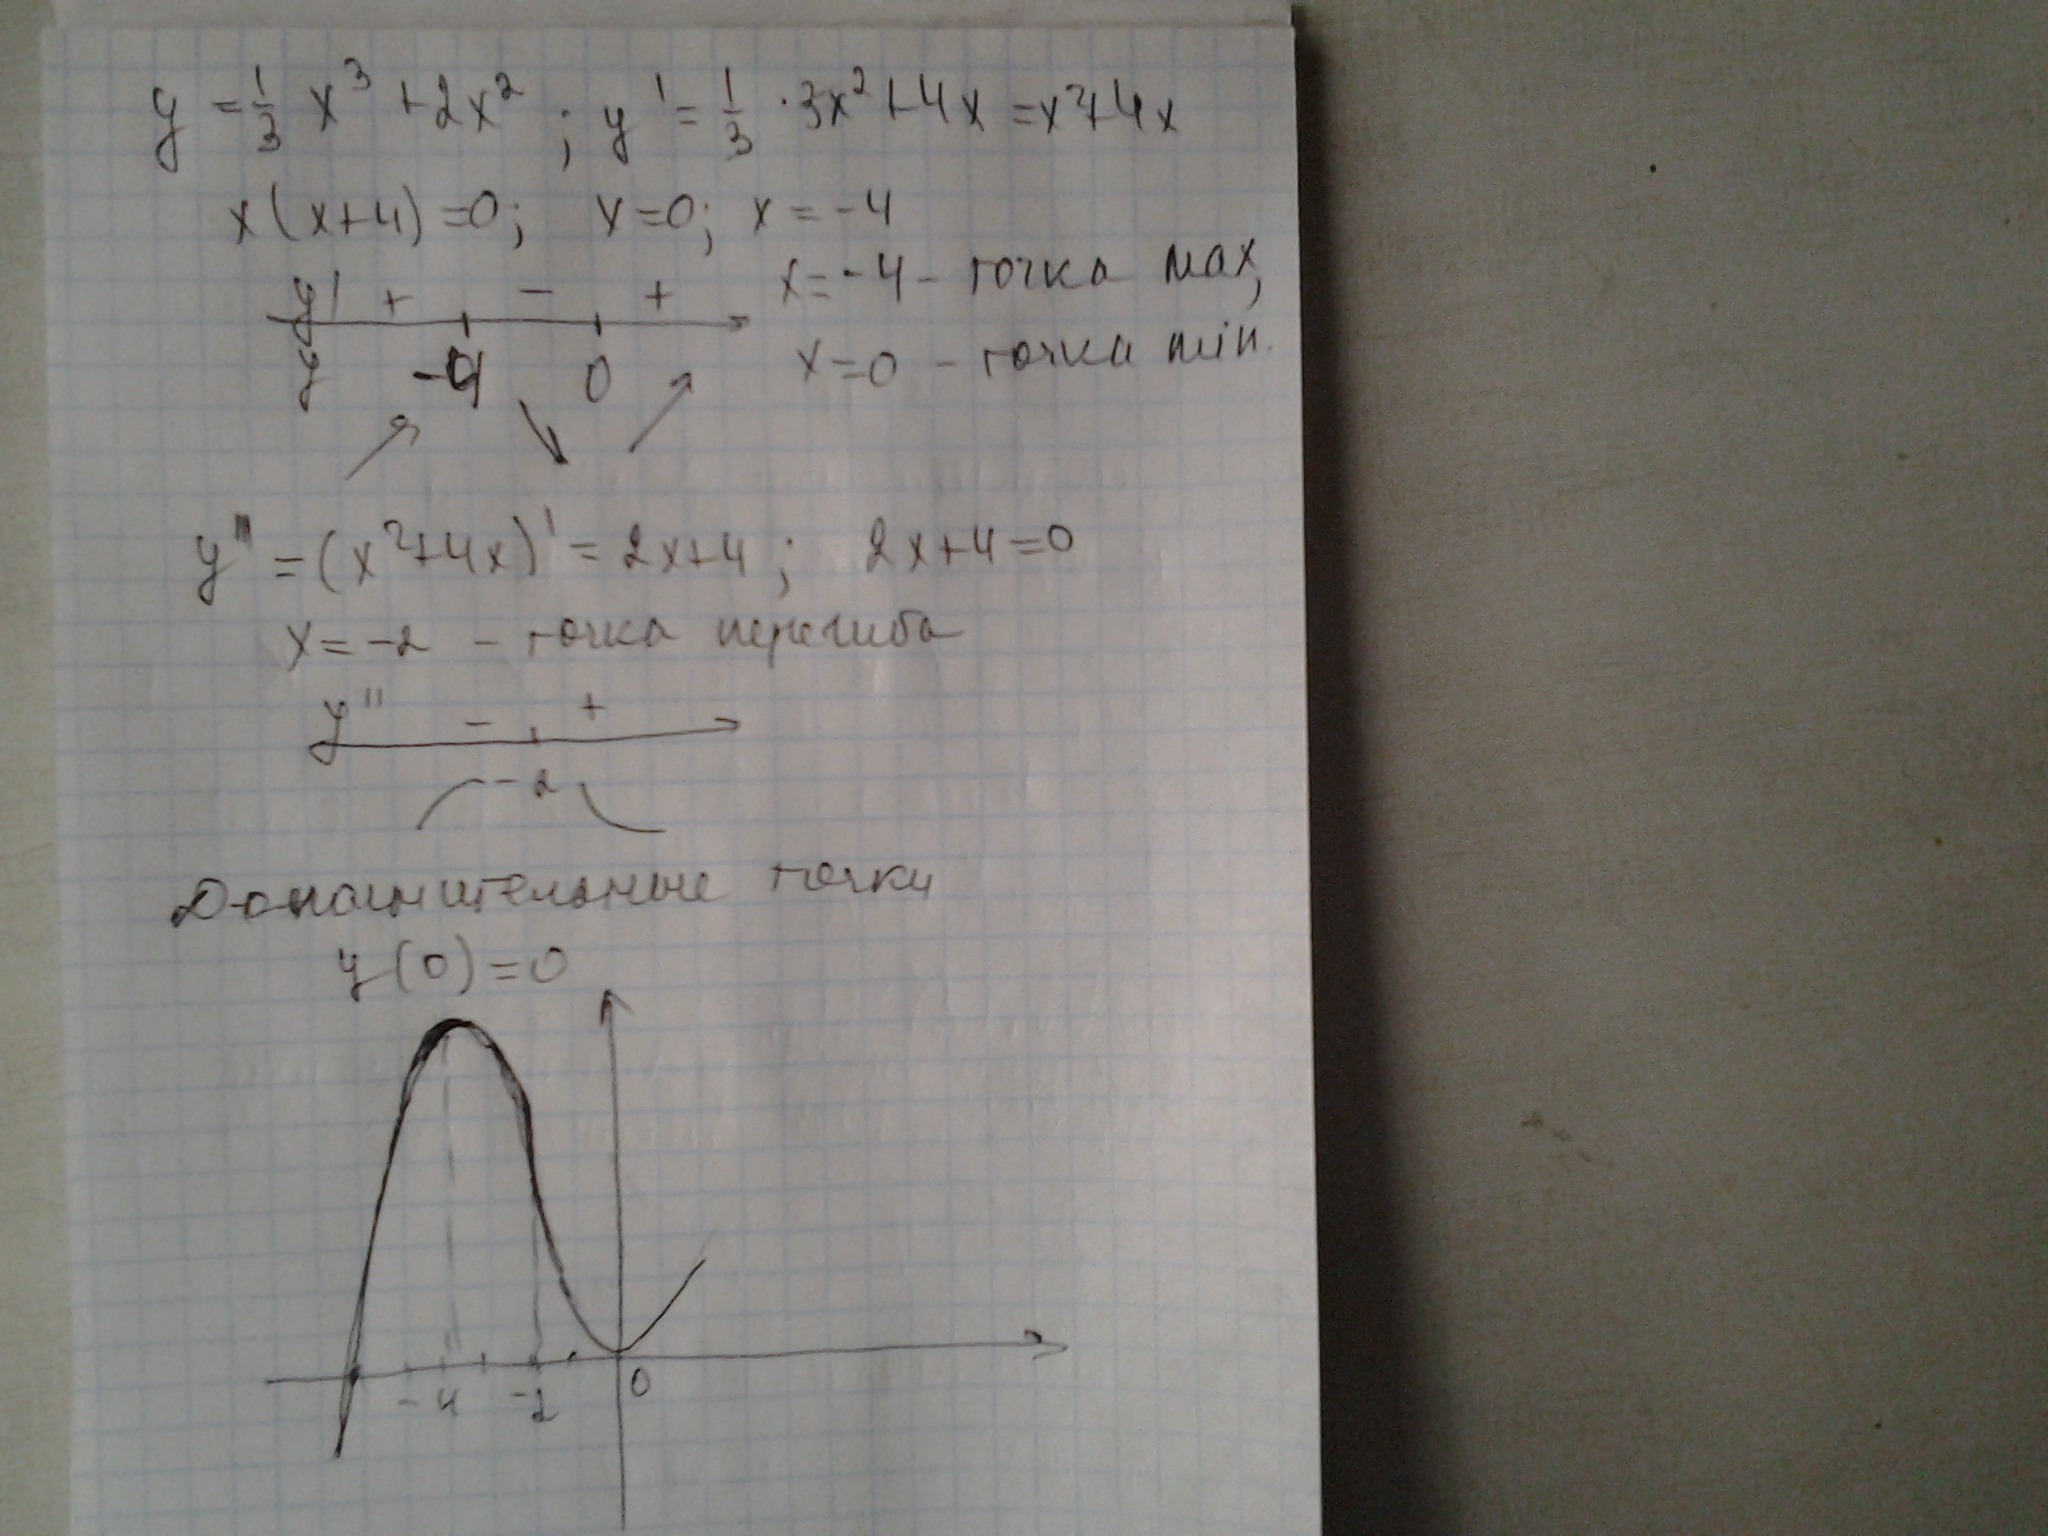 y = 1/3 x³ + 2x² ; y' = 1/3 · 3x² + 4x = x² + 4x
x(x+4) = 0; x = 0; x = -4
x = -4 - точка max,
y' + - +
x = 0 - точка min.
y -4 0
y'' = (x² + 4x)' = 2x+4 ; 2x+4 = 0
x = -2 - точка перегиба
y'' - +
-2
Дополнительные точки
y(0) = 0
-4 -2 0